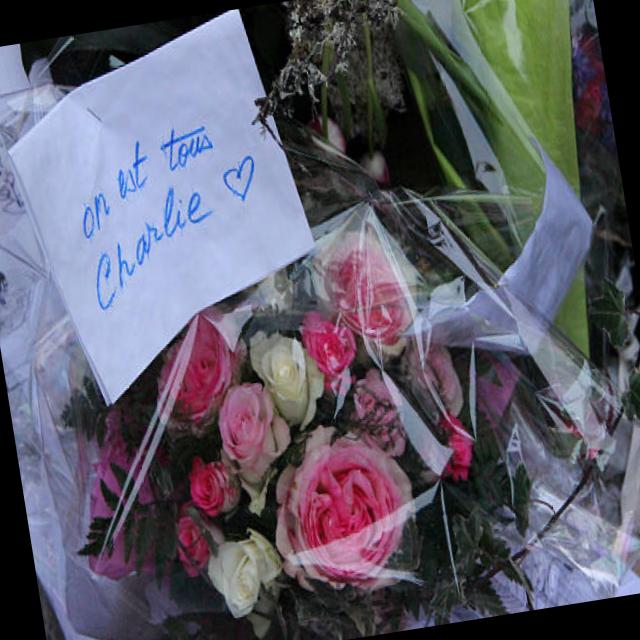 on est tous
Charlie ♡